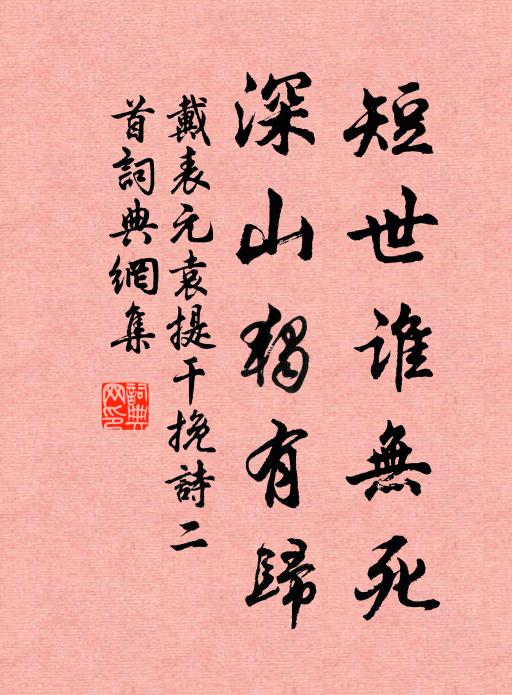 短世誰無死
深山獨有歸
戴表元袁提干挽詩二
首詞典網集
詞典
网印